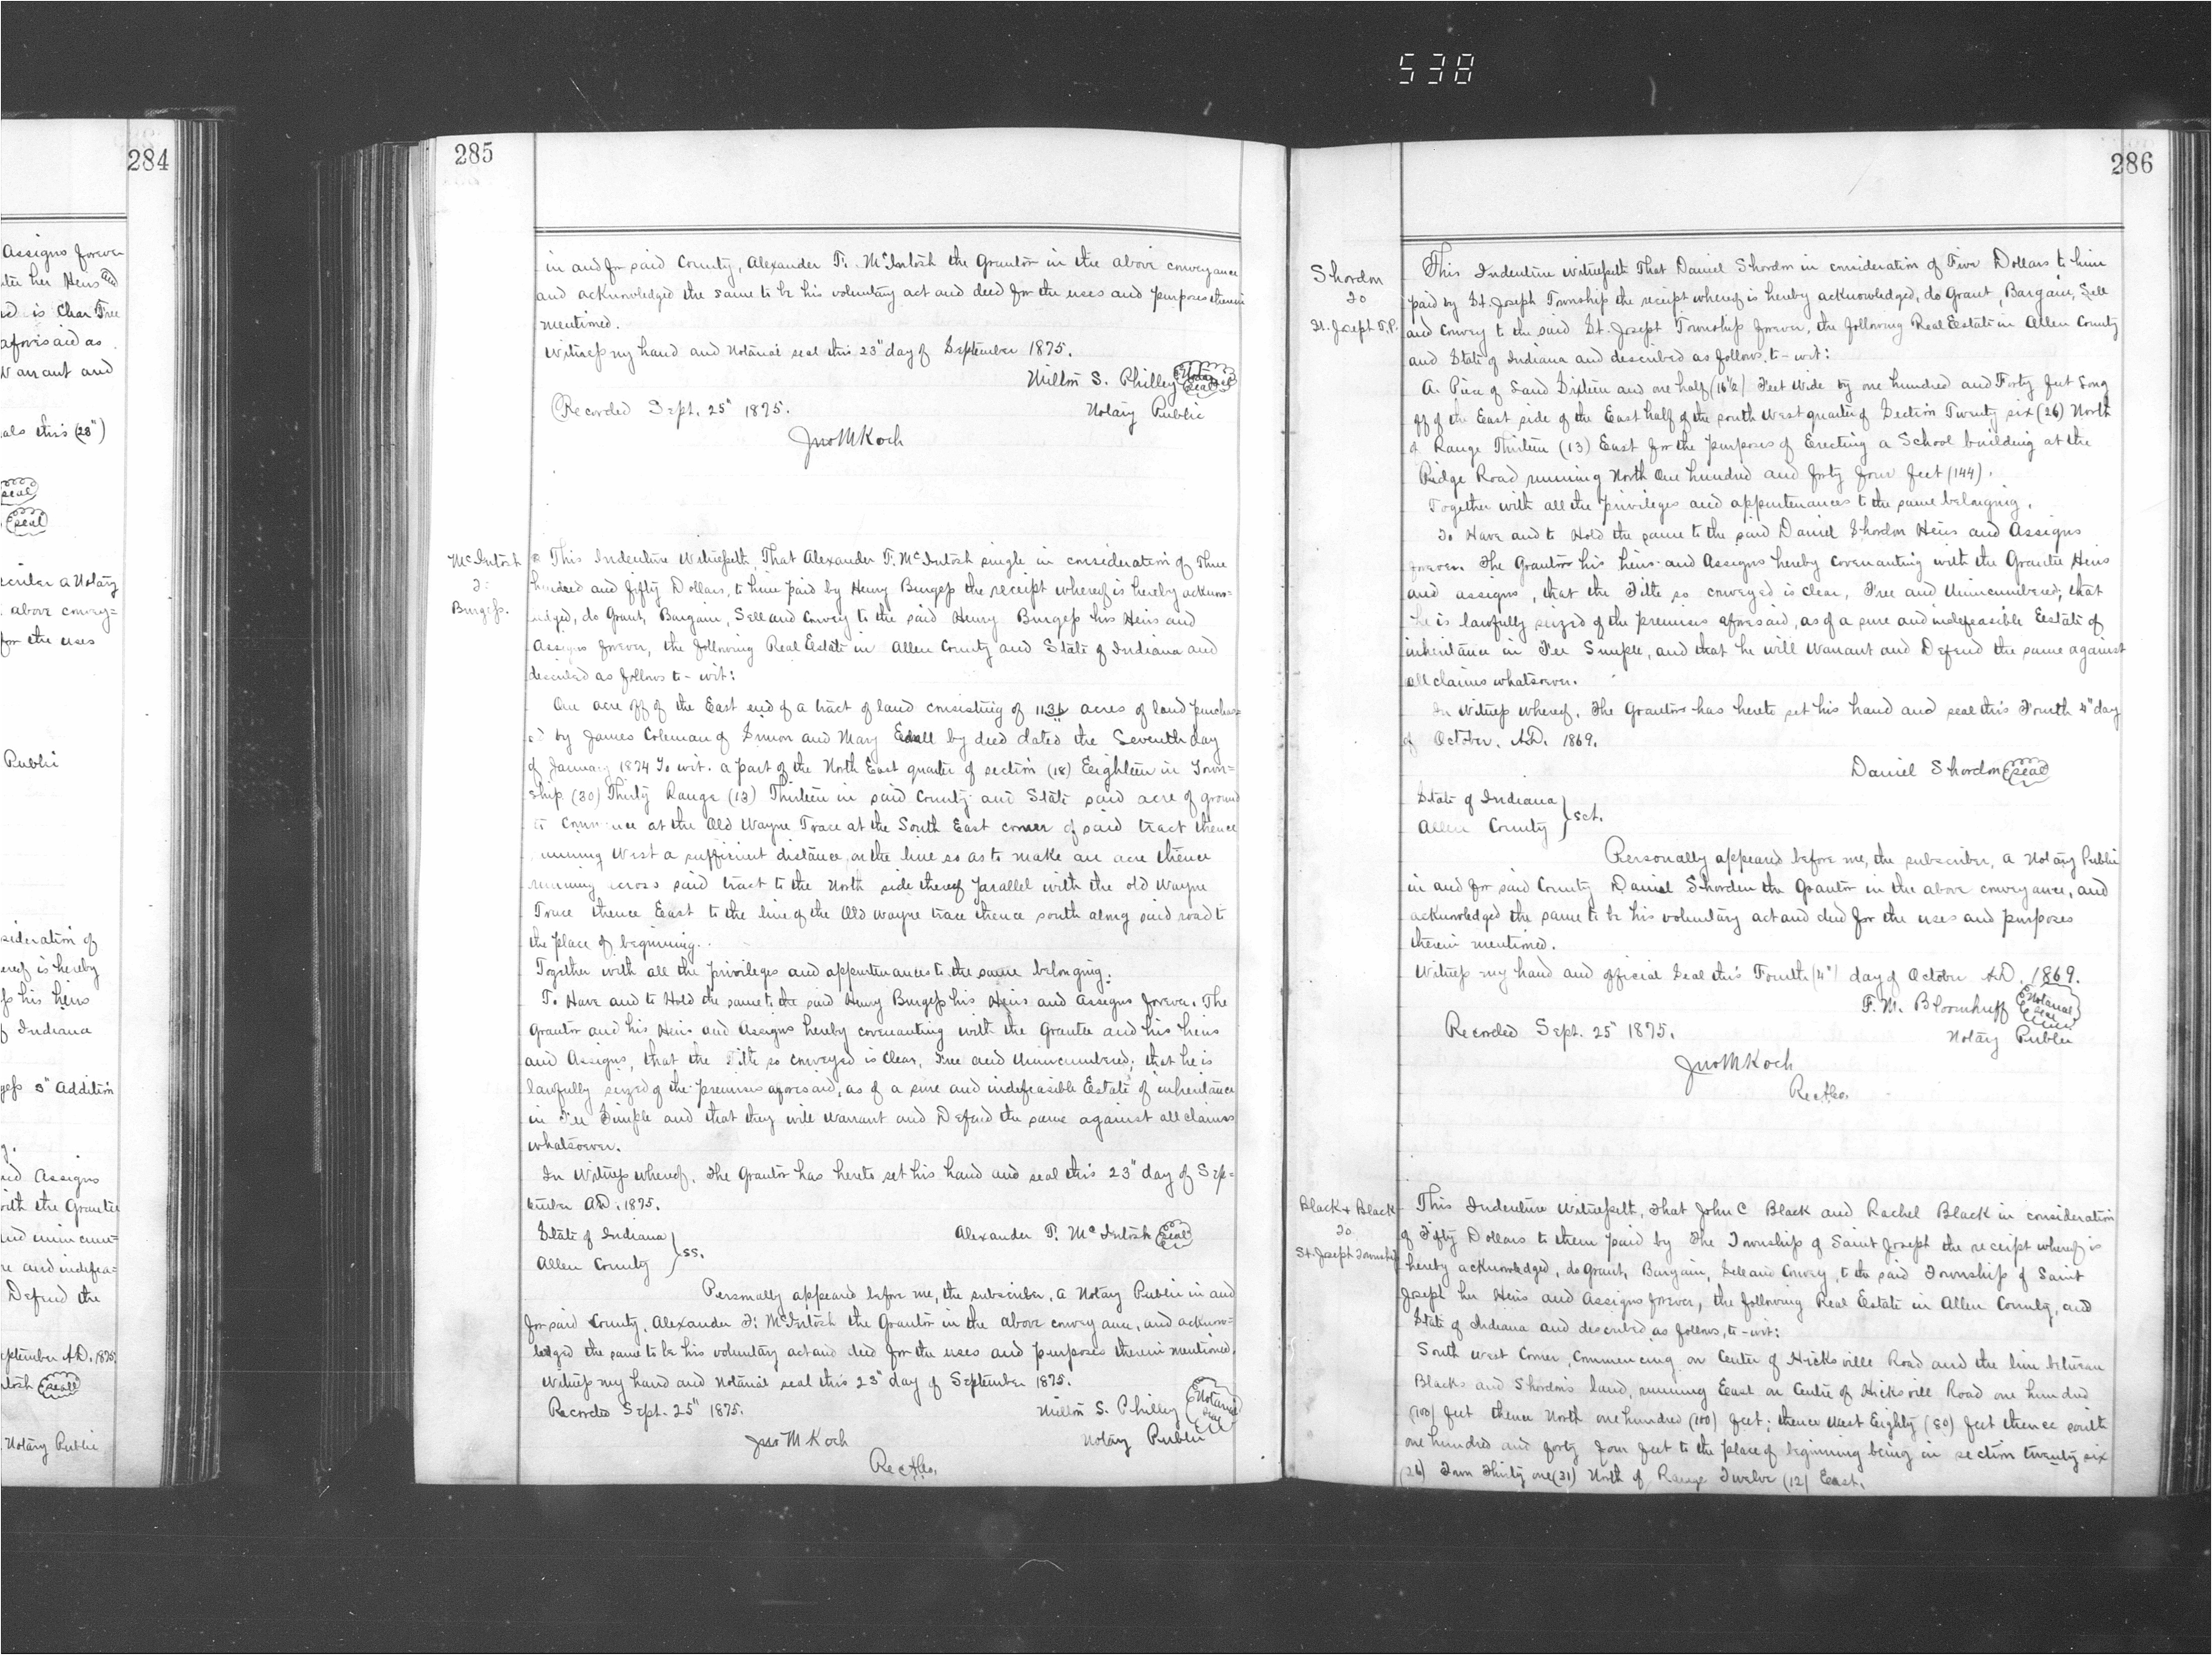 538
284
Assigns forever
her Heirs and
is Clear Free
aforesaid as
Warrant and
this (23")
seal
seal
a Notary
above convey=
for the uses
Public
sideration of
is hereby
his heirs
Indiana
3" Addition
Assigns
with the Grantee
and unincum=
and indefea=
Defend the
September A.D. 1875
seal
Notary Public
285
in and for said County, Alexander T. McIntosh the Grantor in the above conveyance
and acknowledged the same to be his voluntary act and deed for the uses and purposes therein
mentioned.
Witness my hand and Notarial seal this 23" day of September 1875.
Milton S. Philley Notarial Seal
Recorded Sept. 25" 1875. Notary Public
Jno M Koch
McIntosh
To
Burgess.
This Indenture Witnesseth, That Alexander T. McIntosh single in consideration of Three
hundred and fifty Dollars, to him paid by Henry Burgess the receipt whereof is hereby acknow=
ledged, do Grant, Bargain, Sell and Convey to the said Henry Burgess his Heirs and
Assigns forever, the following Real Estate in Allen County and State of Indiana and
described as follows to-wit:
One acre off of the East end of a tract of land consisting of acres of land purchas
ed by James Coleman of Simon and Mary Edsall by deed dated the Seventh day
of January 1874 To wit. a part of the North East quarter of section (18) Eighteen in Town=
ship (30) Thirty Range (13) Thirteen in said County and State said acre of ground
to commence at the Old Wayne Trace at the South East corner of said tract thence
running West a sufficient distance, on the line so as to make an acre thence
running across said tract to the North side thereof parallel with the old Wayne
Trace thence East to the line of the Old Wayne trace thence south along said road to
the place of beginning.
Together with all the privileges and appurtenances to the same belonging.
To Have and to Hold the same to the said Henry Burgess his Heirs and Assigns forever. The
Grantor and his Heirs and Assigns hereby covenanting with the Grantee and his heirs
and Assigns, that the Title so conveyed is Clear, Free and Unincumbered; that he is
lawfully seized of the premises aforesaid, as of a sure and indefeasible Estate of inheritance
in Fee Simple and that they will Warrant and Defend the same against all claims
whatsoever.
In Witness whereof, The Grantor has hereto set his hand and seal this 23" day of Sep=
tember A.D. 1875.
State of Indiana } Alexander T. McIntosh Seal
Allen County } ss.
Personally appeared before me, the subscriber, a Notary Public in and
for said County, Alexander T. McIntosh the Grantor in the above conveyance, and acknow=
ledged the same to be his voluntary act and deed for the uses and purposes therein mentioned.
Witness my hand and Notarial seal this 23" day of September 1875.
Recorded Sept. 25" 1875. Milton S. Philley Notarial Seal
Jno M Koch Notary Public
286
Shordon
To
St. Joseph T.P.
This Indenture Witnesseth That Daniel Shordon in consideration of Five Dollars to him
paid by St. Joseph Township the receipt whereof is hereby acknowledged, do Grant, Bargain, Sell
and Convey to the said St. Joseph Township forever, the following Real Estate in Allen County
and State of Indiana and described as follows, to-wit:
A Piece of Land Sixteen and one half (16 1/2) Feet Wide by one hundred and Forty feet Long
off of the East side of the East half of the south West quarter of Section Twenty six (26) North
of Range Thirteen (13) East for the purposes of Erecting a School building at the
Ridge Road running North One hundred and forty four feet (144).
Together with all the privileges and appurtenances to the same belonging.
To Have and to Hold the same to the said Daniel Shordon Heirs and Assigns
forever. The Grantor his heirs and Assigns hereby Covenanting with the Grantee Heirs
and assigns, that the Title so conveyed is clear, Free and Unincumbered; that
he is lawfully seized of the premises aforesaid, as of a sure and indefeasible Estate of
inheritance in Fee Simple, and that he will Warrant and Defend the same against
all claims whatsoever.
In Witness whereof, The Grantor has hereto set his hand and seal this Fourth 4" day
of October. A.D. 1869.
Daniel Shordon Seal
State of Indiana }
Allen County } sct.
Personally appeared before me, the subscriber, a Notary Public
in and for said County Daniel Shorden the Grantor in the above conveyance, and
acknowledged the same to be his voluntary act and deed for the uses and purposes
therein mentioned.
Witness my hand and official Seal this Fourth (4") day of October A.D. 1869.
F. M. Bloomhuff Notarial Seal
Recorded Sept. 25" 1875. Notary Public
Jno M Koch
Black & Black
To
St. Joseph Township
This Indenture Witnesseth, That John C Black and Rachel Black in consideration
of Fifty Dollars to them paid by The Township of Saint Joseph the receipt whereof is
hereby acknowledged, do Grant, Bargain, Sell and Convey, to the said Township of Saint
Joseph her Heirs and Assigns forever, the following Real Estate in Allen County, and
State of Indiana and described as follows, to-wit:
South West Corner, Commencing on Center of Hicksville Road and the line between
Blacks and Shordon's land, running East on Centre of Hicksvill Road one hundred
(100) feet thence North one hundred (100) feet; thence West Eighty (80) feet thence south
one hundred and forty four feet to the place of beginning being in section twenty six
(26) Town Thirty one (31) North of Range Twelve (12) East.